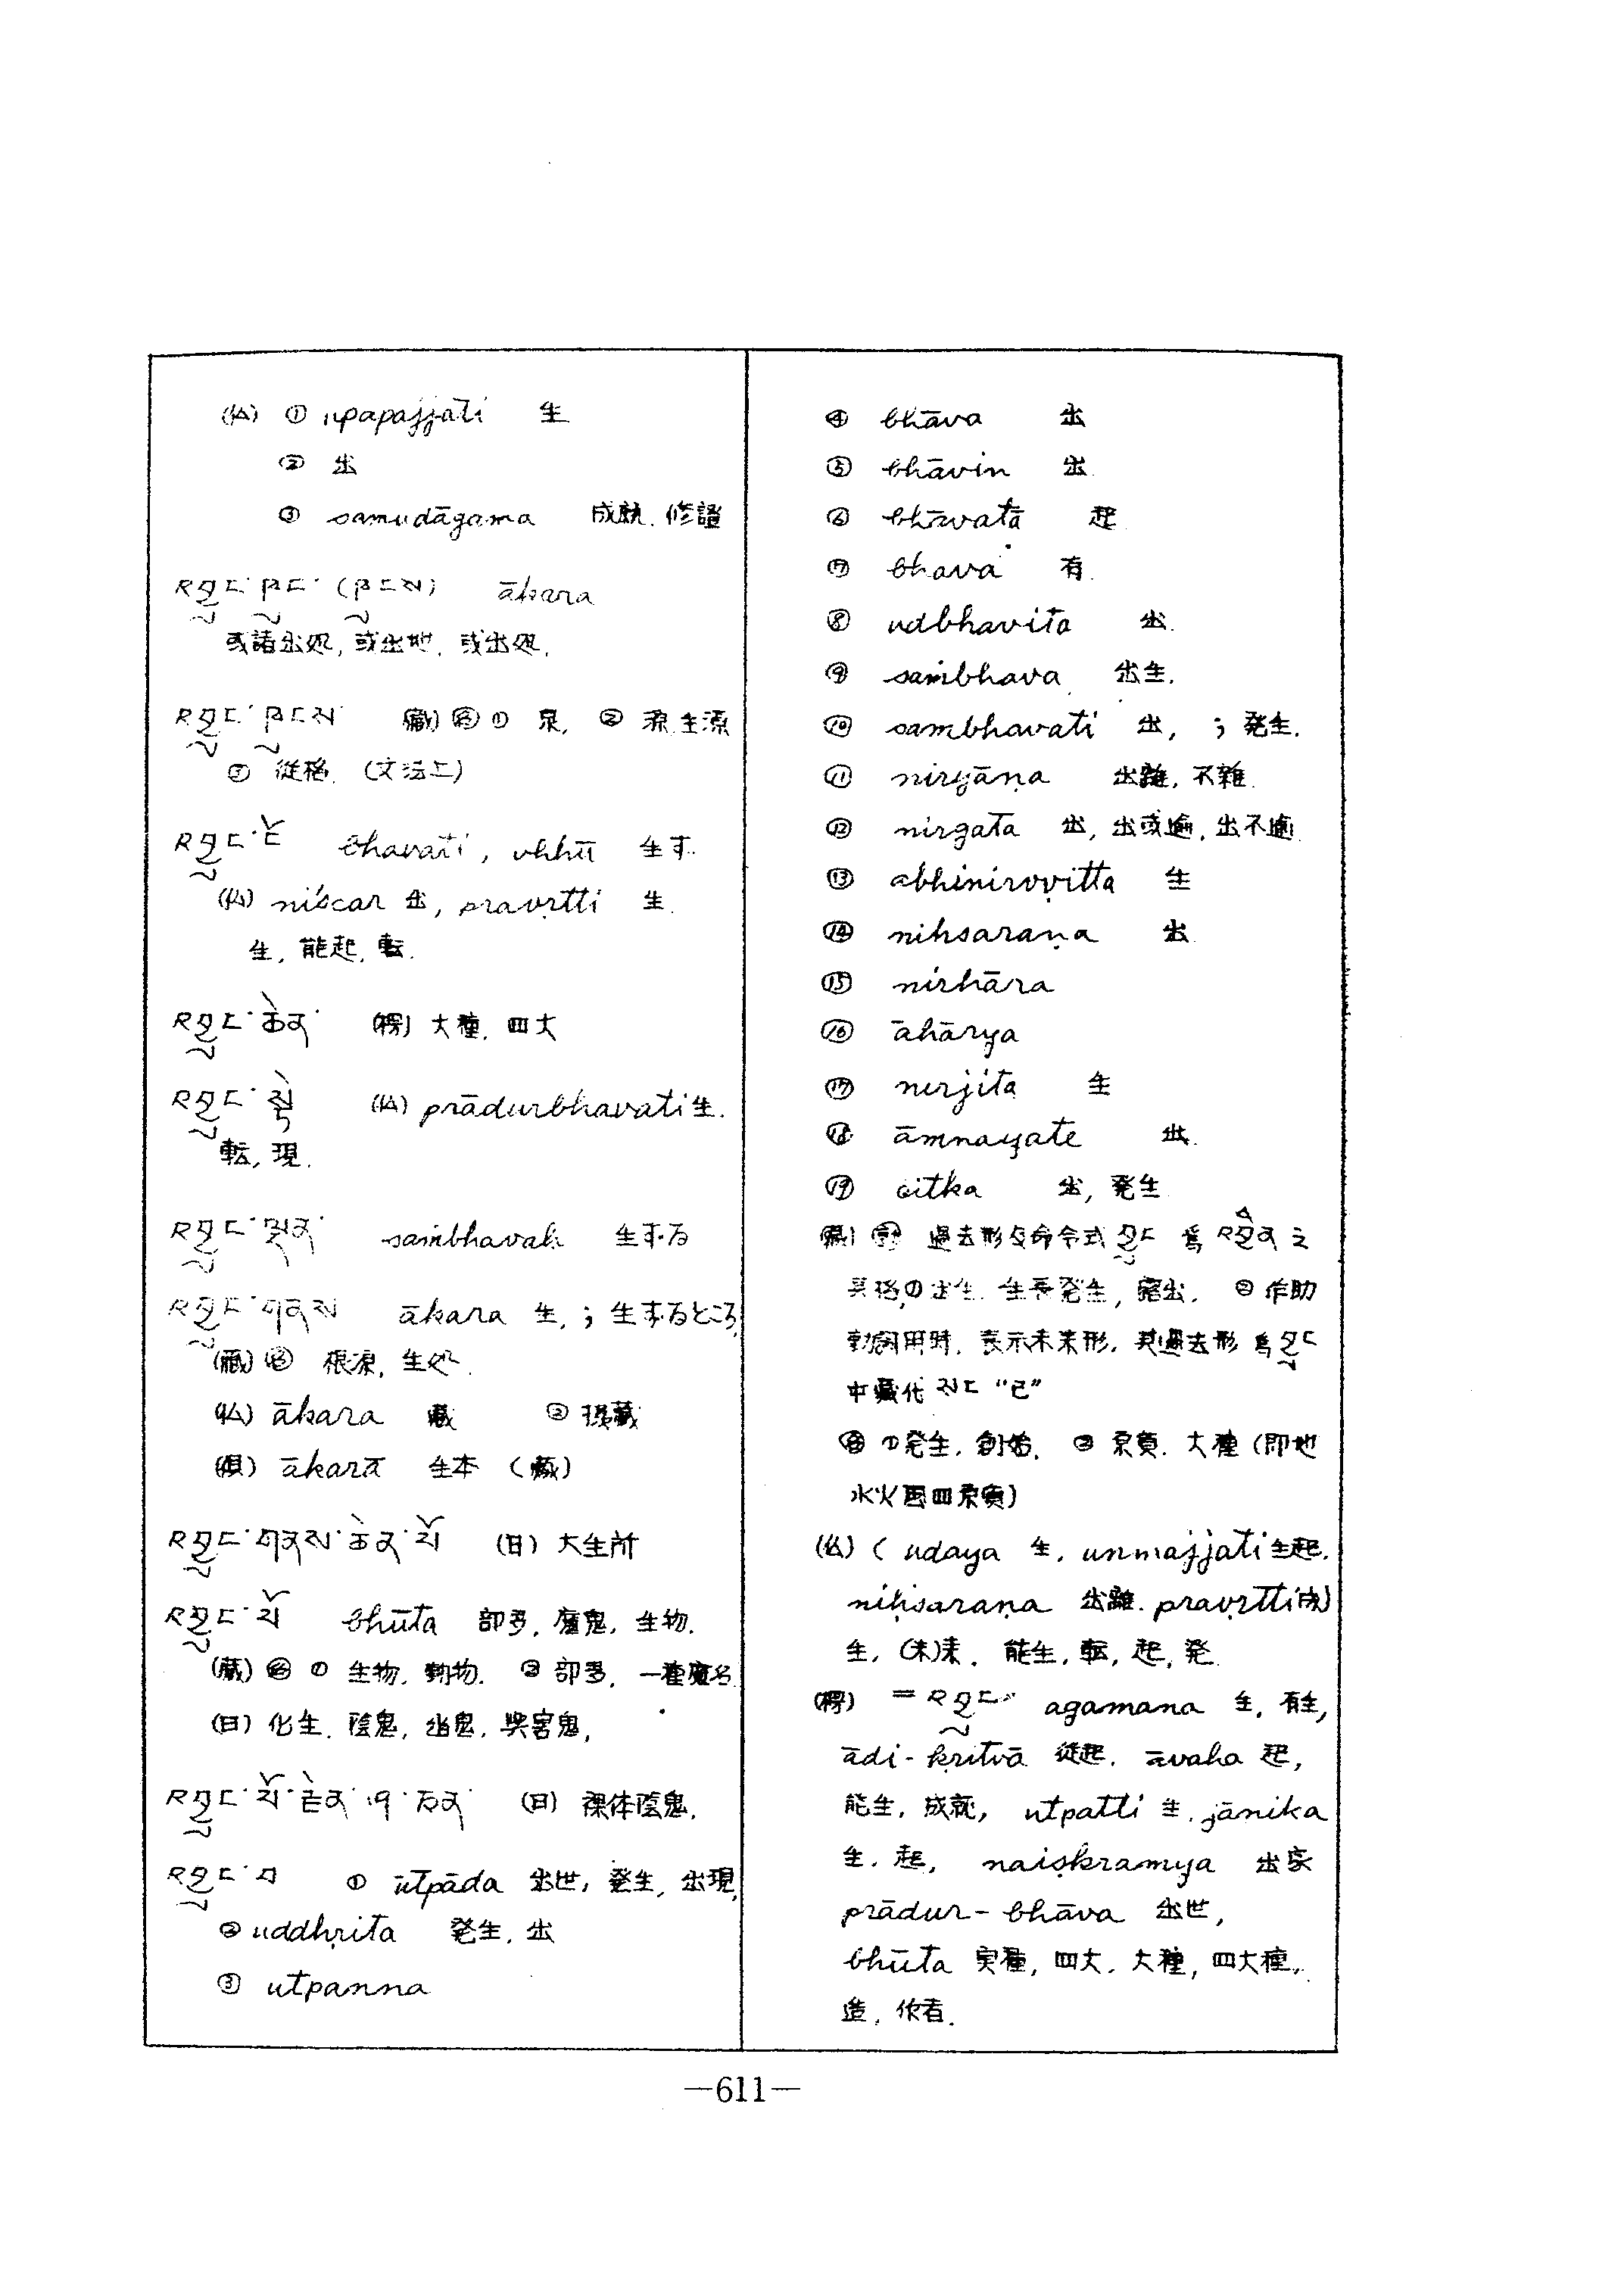 (仏) ① upapajjati 生
② 出
③ samudāgama 成就. 修證
འབྱུང་ཁང་ (ཁངས) ākara
或諸出処, 或出地, 或出処.
འབྱུང་ཁངས་ (藏) 名 ① 泉, ② 源, 生源
③ 從格. (文法上)
འབྱུང་ངོ bhavati, 生す.
(仏) niścar 出, pravṛtti 生.
生, 能起, 転.
འབྱུང་ཆེན་ (楞) 大種. 四大
འབྱུང་སྟེ (仏) prādurbhavati 生.
転, 現.
འབྱུང་ལྡན་ saṁbhavaḥ 生する
འབྱུང་གནས ākara 生, ; 生するところ,
(藏) 名 根源, 生処.
(仏) ākara 藏 ② 藏
(俱) ākara 生本 (藏)
འབྱུང་གནས་ཆེན་པོ (日) 大生所
འབྱུང་པོ bhūta 部多, 魔鬼, 生物.
(藏) 名 ① 生物, 動物. ② 部多, 一種魔名
(日) 化生, 陰鬼, 幽鬼, 害鬼,
འབྱུང་པོ (日) 裸体陰鬼.
འབྱུང་བ ① utpāda 出世, 発生, 出現,
② uddhṛita 発生, 出
③ utpanna
④ bhāva 出
⑤ bhāvin 出
⑥ bhāvatā 起
⑦ bhava 有
⑧ udbhavita 出.
⑨ saṁbhava 出生.
⑩ sambhavati 出, ; 発生.
⑪ niryāṇa 出離, 不雜.
⑫ nirgata 出, 出或逾, 出不逾
⑬ abhinirvṛitta 生
⑭ nihsaraṇa 出
⑮ nirhāra
⑯ āhārya
⑰ nirjita 生
⑱ āmnayate 出.
⑲ citka 出, 発生
(藏) 過去形及命令式 བྱུང 為 འབྱིན 之
異格, ① 出生. 生長発生, 露出. ② 作助
動詞用時, 表示未来形, 其過去形 為 བྱུང
中藏代 སང "已"
名 ① 発生, 創始, ② 原質. 大種 (即地
水火風四原質)
(仏) ( udaya 生, unmajjati 生起.
niḥsaraṇa 出離. pravṛtti (成)
生, (未)来, 能生, 転, 起, 発.
(楞) = འབྱུང་ agamana 生, 有生,
ādi-kṛitvā 從起. āvaha 起,
能生, 成就, utpatti 生. jānika
生. 起, naiṣkramya 出家
prādur-bhāva 出世,
bhūta 実種, 四大. 大種, 四大種,
造, 作者.
—611—